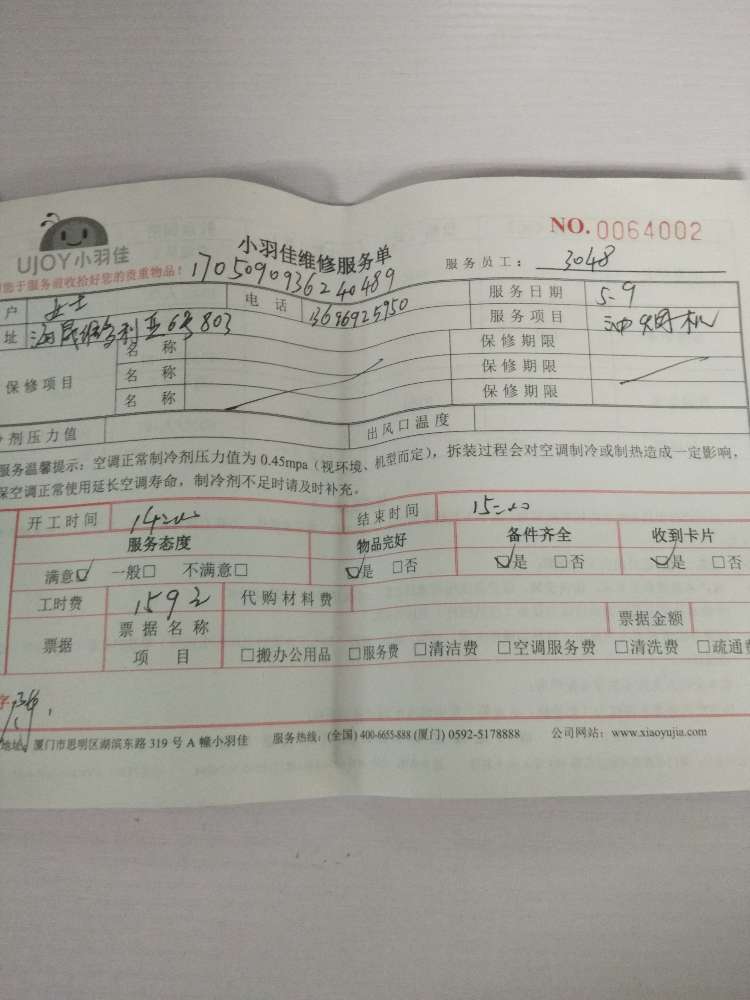 NO. 0064002
UJOY小羽佳
小羽佳维修服务单
服务员工： 3048
于服务前收拾好您的贵重物品！
1705090936240489
户 女士 电话 13696925950 服务日期 5-9
址 海晟维多利亚6号803 服务项目 油烟机
保修项目 名称 保修期限
名称 保修期限
名称 保修期限
剂压力值 出风口温度
服务温馨提示：空调正常制冷剂压力值为 0.45mpa（视环境、机型而定），拆装过程会对空调制冷或制热造成一定影响，
保空调正常使用延长空调寿命，制冷剂不足时请及时补充。
开工时间 14:00 结束时间 15:00
服务态度 物品完好 备件齐全 收到卡片
满意☑ 一般□ 不满意□ ☑是 □否 ☑是 □否 ☑是 □否
工时费 159元 代购材料费
票据 票据名称 票据金额
项目 □搬办公用品 □服务费 □清洁费 □空调服务费 □清洗费 □疏通费
字
地址：厦门市思明区湖滨东路 319 号 A 幢小羽佳 服务热线：(全国) 400-6655-888 (厦门) 0592-5178888 公司网站：www.xiaoyujia.com